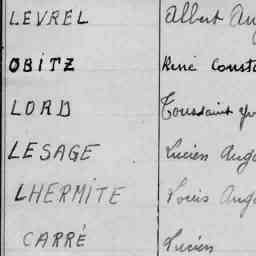 LEVREL Albert Aug
OBITZ René Consta
LORD Toussaint Yv
LESAGE Lucien Aug
LHERMITE Louis Aug
CARRÉ Lucien